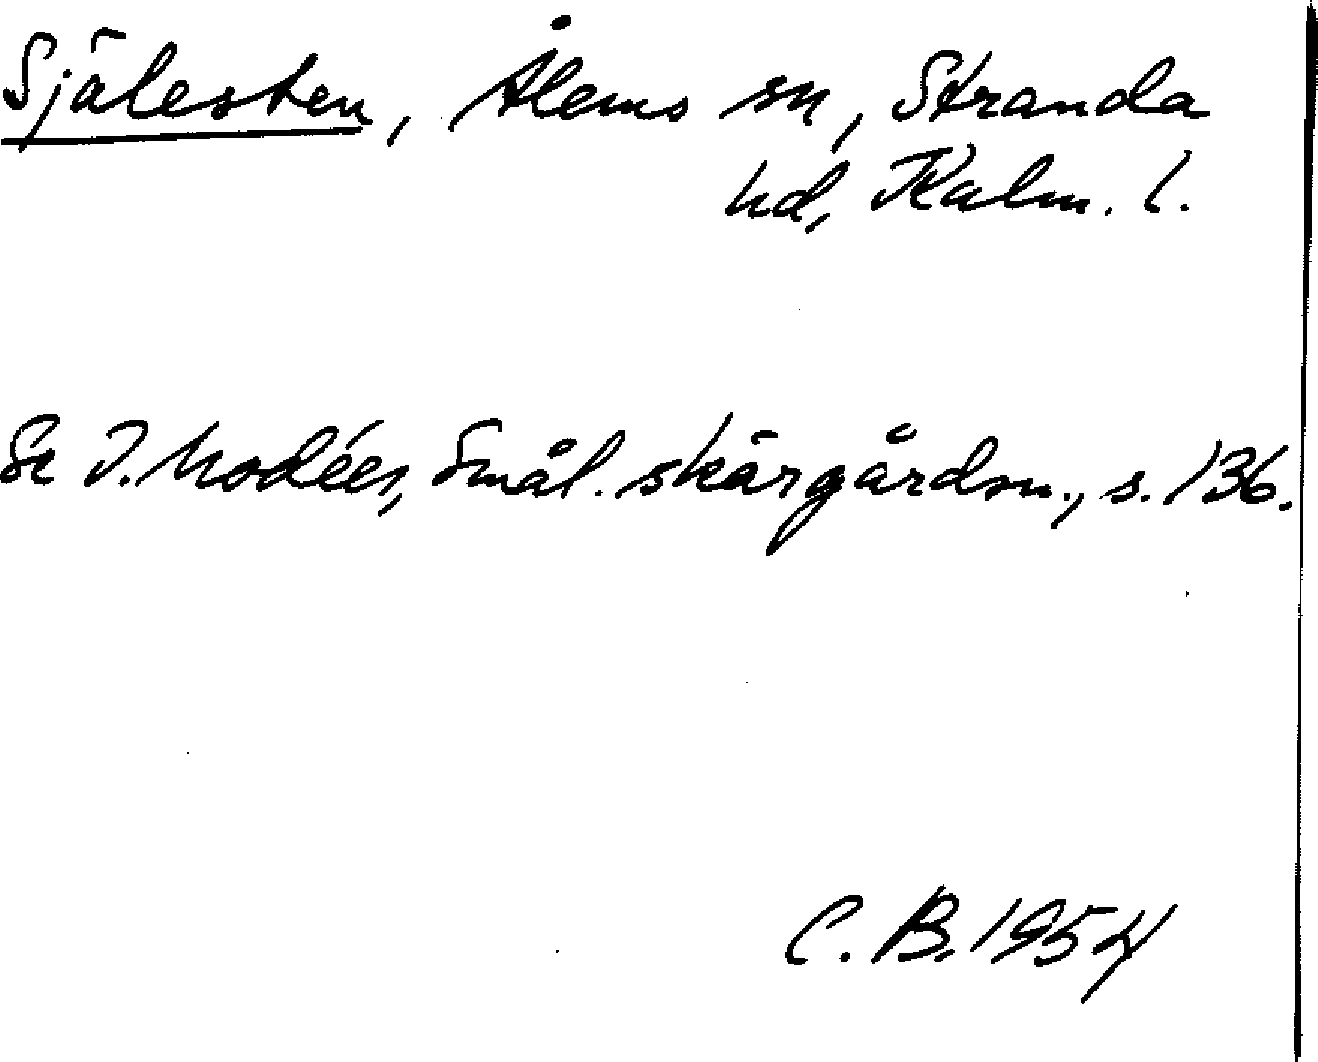 Själesten, Ålems sn, Stranda
hd, Kalm. l.
Se I. Modéer, Smål. skärgårdsn., s. 136.
C. B. 1954